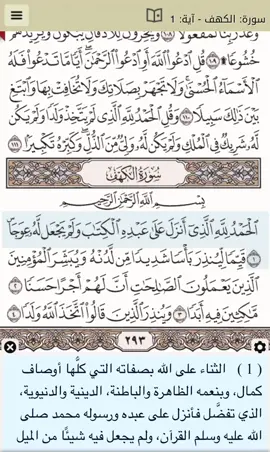 سورة: الكهف - آية: 1
وَعْدُ رَبِّنَا لَمَفْعُولًا ١٠٨ وَيَخِرُّونَ لِلْأَذْقَانِ يَبْكُونَ وَيَزِيدُهُمْ
خُشُوعًا ۩ ١٠٩ قُلِ ادْعُوا اللَّهَ أَوِ ادْعُوا الرَّحْمَٰنَ أَيًّا مَّا تَدْعُوا فَلَهُ
الْأَسْمَاءُ الْحُسْنَىٰ وَلَا تَجْهَرْ بِصَلَاتِكَ وَلَا تُخَافِتْ بِهَا وَابْتَغِ
بَيْنَ ذَٰلِكَ سَبِيلًا ١١٠ وَقُلِ الْحَمْدُ لِلَّهِ الَّذِي لَمْ يَتَّخِذْ وَلَدًا وَلَمْ يَكُن
لَّهُ شَرِيكٌ فِي الْمُلْكِ وَلَمْ يَكُن لَّهُ وَلِيٌّ مِّنَ الذُّلِّ وَكَبِّرْهُ تَكْبِيرًا ١١١
سُورَةُ الْكَهْفِ
بِسْمِ اللَّهِ الرَّحْمَٰنِ الرَّحِيمِ
الْحَمْدُ لِلَّهِ الَّذِي أَنزَلَ عَلَىٰ عَبْدِهِ الْكِتَابَ وَلَمْ يَجْعَل لَّهُ عِوَجًا
١ قَيِّمًا لِّيُنذِرَ بَأْسًا شَدِيدًا مِّن لَّدُنْهُ وَيُبَشِّرَ الْمُؤْمِنِينَ
الَّذِينَ يَعْمَلُونَ الصَّالِحَاتِ أَنَّ لَهُمْ أَجْرًا حَسَنًا ٢
مَّاكِثِينَ فِيهِ أَبَدًا ٣ وَيُنذِرَ الَّذِينَ قَالُوا اتَّخَذَ اللَّهُ وَلَدًا ٤
٢٩٣
( 1 ) الثناء على الله بصفاته التي كلُّها أوصاف
كمال، وبنعمه الظاهرة والباطنة، الدينية والدنيوية،
الذي تفضَّل فأنزل على عبده ورسوله محمد صلى
الله عليه وسلم القرآن، ولم يجعل فيه شيئًا من الميل